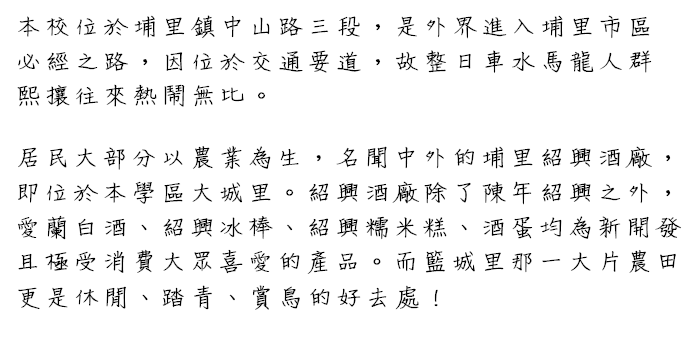 本校位於埔里鎮中山路三段，是外界進入埔里市區
必經之路，因位於交通要道，故整日車水馬龍人群
熙攘往來熱鬧無比。
居民大部分以農業為生，名聞中外的埔里紹興酒廠，
即位於本學區大城里。紹興酒廠除了陳年紹興之外，
愛蘭白酒、紹興冰棒、紹興糯米糕、酒蛋均為新開發
且極受消費大眾喜愛的產品。而籃城里那一大片農田
更是休閒、踏青、賞鳥的好去處！